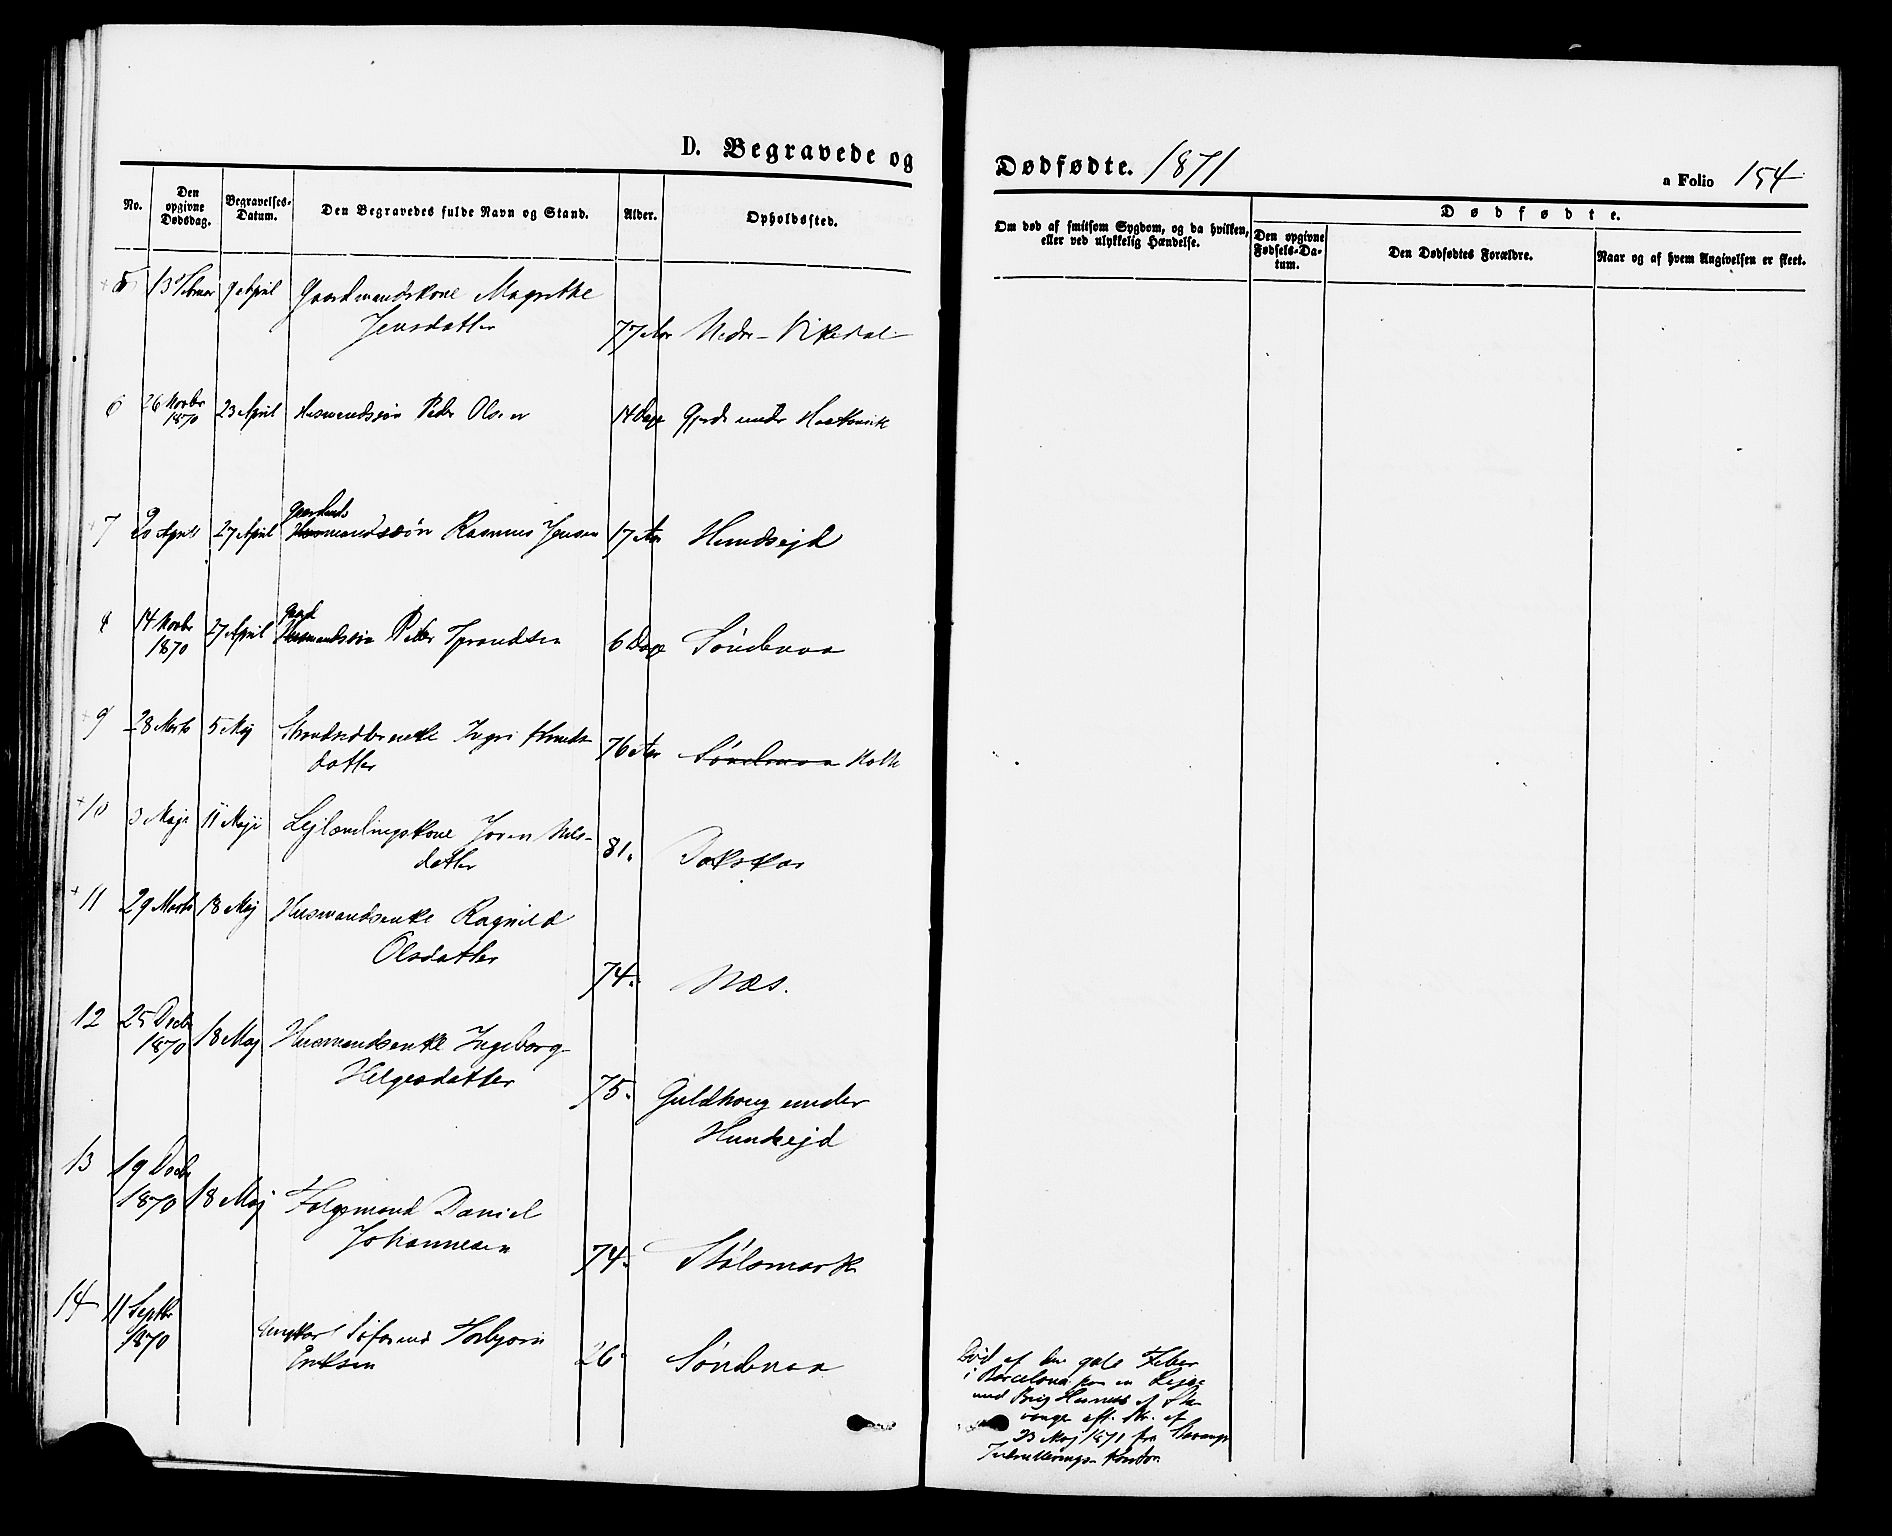 D. Begravede og
Dødfødte. 1871
a Folio 154
No.
Den opgivne Dødsdag.
Begravelses-Datum.
Den Begravedes fulde Navn og Stand.
Alder.
Opholdssted.
Om død af smitsom Sygdom, og da hvilken,
eller ved ulykkelig Hændelse.
Dødfødte.
Den opgivne Fødsels-Datum.
Den Dødfødtes Forældre.
Naar og af hvem Angivelsen er skeet.
5 13 Februar 9 April Gaardmandskone Magrethe
Jensdatter 77 Aar Nedre-Vikedal
6 26 Novbr 1870 23 April Husmandssøn Peder Olsen 14 Dage under
7 20 April 27 April Gaardmds Husmandssøn Rasmus Jensen 17 Aar Hundsejd
8 14 Novbr 1870 27 April Gaard Husmandssøn Peder 6 Dage Søndenaa
9 28 Marts 5 Maj
datter 76 Aar Søndenaa
10 3 Maji 11 Maji Lejlændingskone Joren Nils-
datter 81.
11 29 Marts 18 Maj Husmandsenke Ragnild
Olsdatter 74. Næs.
12 25 Decbr 1870 18 Maj Husmandsenke Ingeborg
Helgesdatter 75. Guldhoug under
Hundsejd
13 19 Decbr 1870 18 Maj Folgemand Daniel
Johannesen 74. Stølsmark
14 11 Septbr 1870 Ungkarl Søfarend Torbjørn
Eriksen 26. Søndenaa
Død af den gule Feber
i Barcelona paa en Rejse
med Brig af Sta-
vanger eft. Skr. af
23 Maj 1871 fra Stavanger
Indrullerings Kontor